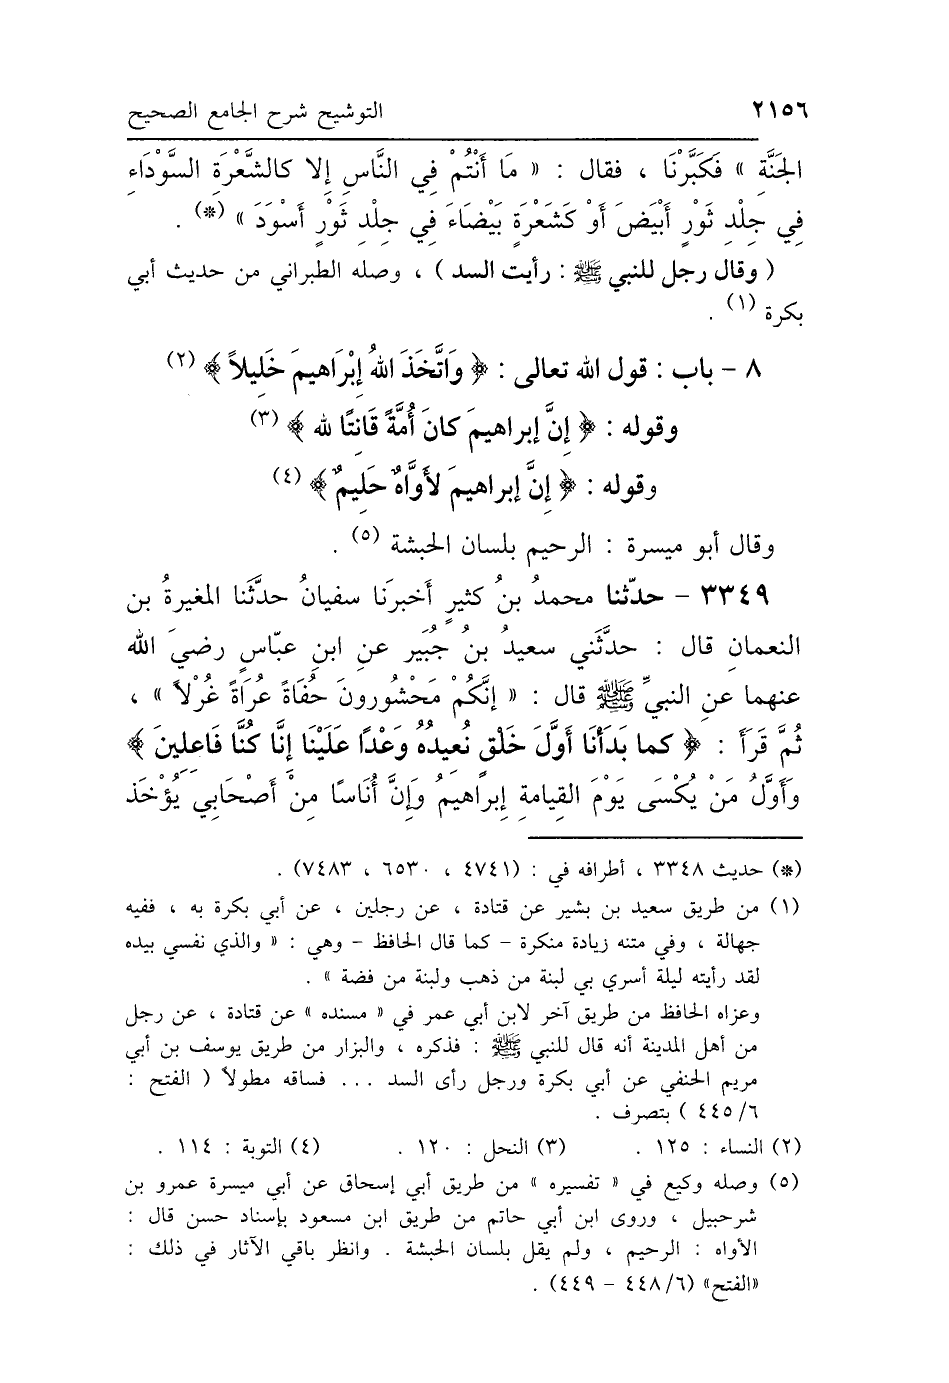 ٢١٥٦ التوشيح شرح الجامع الصحيح
الجَنَّةِ » فَكَبَّرْنَا ، فقال : « مَا أَنْتُمْ فِي النَّاسِ إلا كالشَّعْرَةِ السَّوْدَاءِ
فِي جِلْدِ ثَوْرٍ أَبْيَضَ أَوْ كَشَعْرَةٍ بَيْضَاءَ فِي جِلْدِ ثَوْرٍ أَسْوَدَ » (*) .
( وقال رجل للنبي ﷺ : رأيت السد ) ، وصله الطبراني من حديث أبي
بكرة (١) .
٨ - باب : قول الله تعالى : ﴿ وَاتَّخَذَ اللهُ إِبْرَاهِيمَ خَلِيلاً ﴾ (٢)
وقوله : ﴿ إِنَّ إبراهيمَ كانَ أُمَّةً قَانِتًا لله ﴾ (٣)
وقوله : ﴿ إِنَّ إبراهيمَ لأَوَّاهٌ حَلِيمٌ ﴾ (٤)
وقال أبو ميسرة : الرحيم بلسان الحبشة (٥) .
٣٣٤٩ - حدّثنا محمدُ بنُ كثيرٍ أَخبرَنا سفيانُ حدَّثَنا المغيرةُ بن
النعمانِ قال : حدَّثَني سعيدُ بنُ جُبَير عنِ ابنِ عبّاسٍ رضيَ الله
عنهما عنِ النبيِّ ﷺ قال : « إِنَّكُمْ مَحْشُورونَ حُفَاةً عُرَاةً غُرْلاً » ،
ثُمَّ قَرَأَ : ﴿ كما بَدَأنَا أَوَّلَ خَلْقٍ نُعيدُهُ وَعْدًا عَلَيْنَا إنَّا كُنَّا فَاعلينَ ﴾
وَأَوَّلُ مَنْ يُكْسَى يَوْمَ القِيامةِ إبراهيمُ وَإِنَّ أُنَاسًا مِنْ أَصْحَابِي يُؤْخَذ
(*) حديث ٣٣٤٨ ، أطرافه في : (٤٧٤١ ، ٦٥٣٠ ، ٧٤٨٣) .
(١) من طريق سعيد بن بشير عن قتادة ، عن رجلين ، عن أبي بكرة به ، ففيه
جهالة ، وفي متنه زيادة منكرة - كما قال الحافظ - وهي : « والذي نفسي بيده
لقد رأيته ليلة أسري بي لبنة من ذهب ولبنة من فضة » .
وعزاه الحافظ من طريق آخر لابن أبي عمر في « مسنده » عن قتادة ، عن رجل
من أهل المدينة أنه قال للنبي ﷺ : فذكره ، والبزار من طريق يوسف بن أبي
مريم الحنفي عن أبي بكرة ورجل رأى السد ... فساقه مطولاً ( الفتح :
٦/ ٤٤٥ ) بتصرف .
(٢) النساء : ١٢٥ . (٣) النحل : ١٢٠ . (٤) التوبة : ١١٤ .
(٥) وصله وكيع في « تفسيره » من طريق أبي إسحاق عن أبي ميسرة عمرو بن
شرحبيل ، وروى ابن أبي حاتم من طريق ابن مسعود بإسناد حسن قال :
الأواه : الرحيم ، ولم يقل بلسان الحبشة . وانظر باقي الآثار في ذلك :
«الفتح» (٦/ ٤٤٨ - ٤٤٩) .